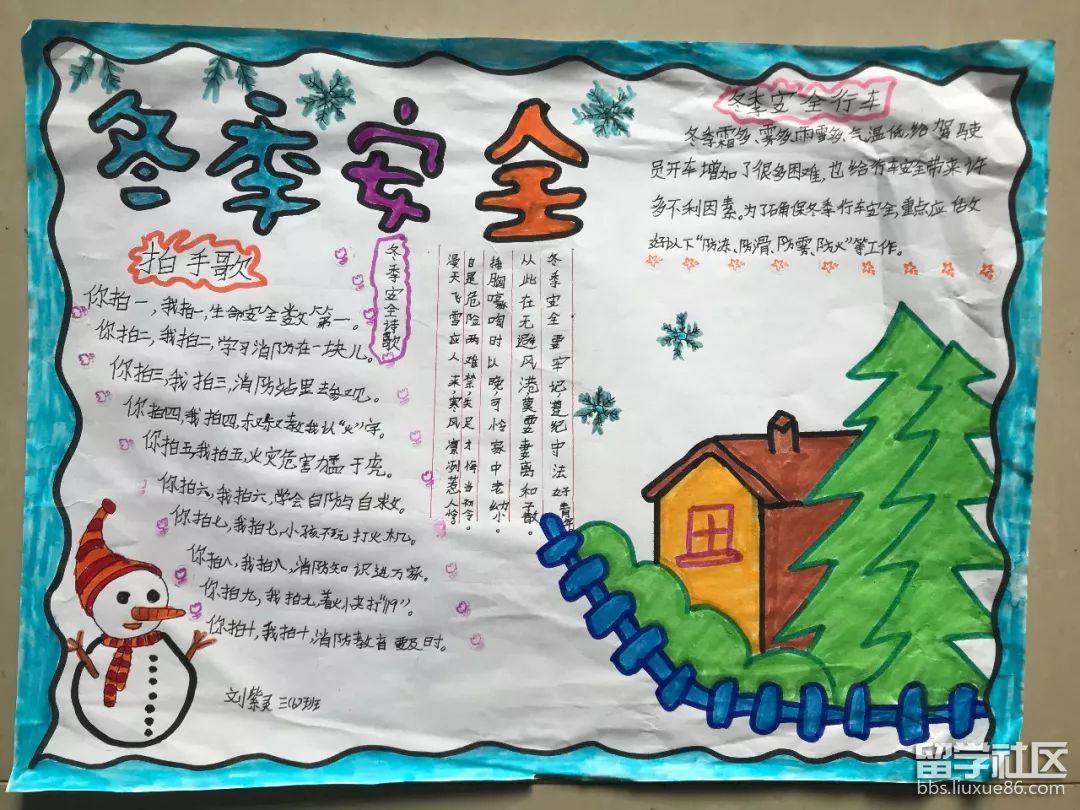 冬季安全
拍手歌
你拍一，我拍一，生命安全数第一。
你拍二，我拍二，学习消防在一块儿。
你拍三，我拍三，消防站里去参观。
你拍四，我拍四，叔叔教我认“火”字。
你拍五，我拍五，火灾危害力猛于虎。
你拍六，我拍六，学会自防与自救。
你拍七，我拍七，小孩不玩打火机。
你拍八，我拍八，消防知识进万家。
你拍九，我拍九，着火火打“119”。
你拍十，我拍十，消防教育要及时。
刘紫灵 三(6)班
冬季安全诗歌
冬季安全要牢记，遵纪守法好青年
从此在无避风港，莫要妻离和子散。
捶胸嚎啕时以晚，可怜家中老幼小。
自是危险两难禁，失足才悔当初令。
漫天飞雪应人来，寒风凛冽惹人怜
冬季安全行车
冬季霜多、雾多、雨雪多、气温低，给驾驶
员开车增加了很多困难，也给行车安全带来许
多不利因素。为了确保冬季行车安全，重点应估文
好以下“防冻、防滑、防雾、防火”等工作。
留学社区
bbs.liuxue86.com